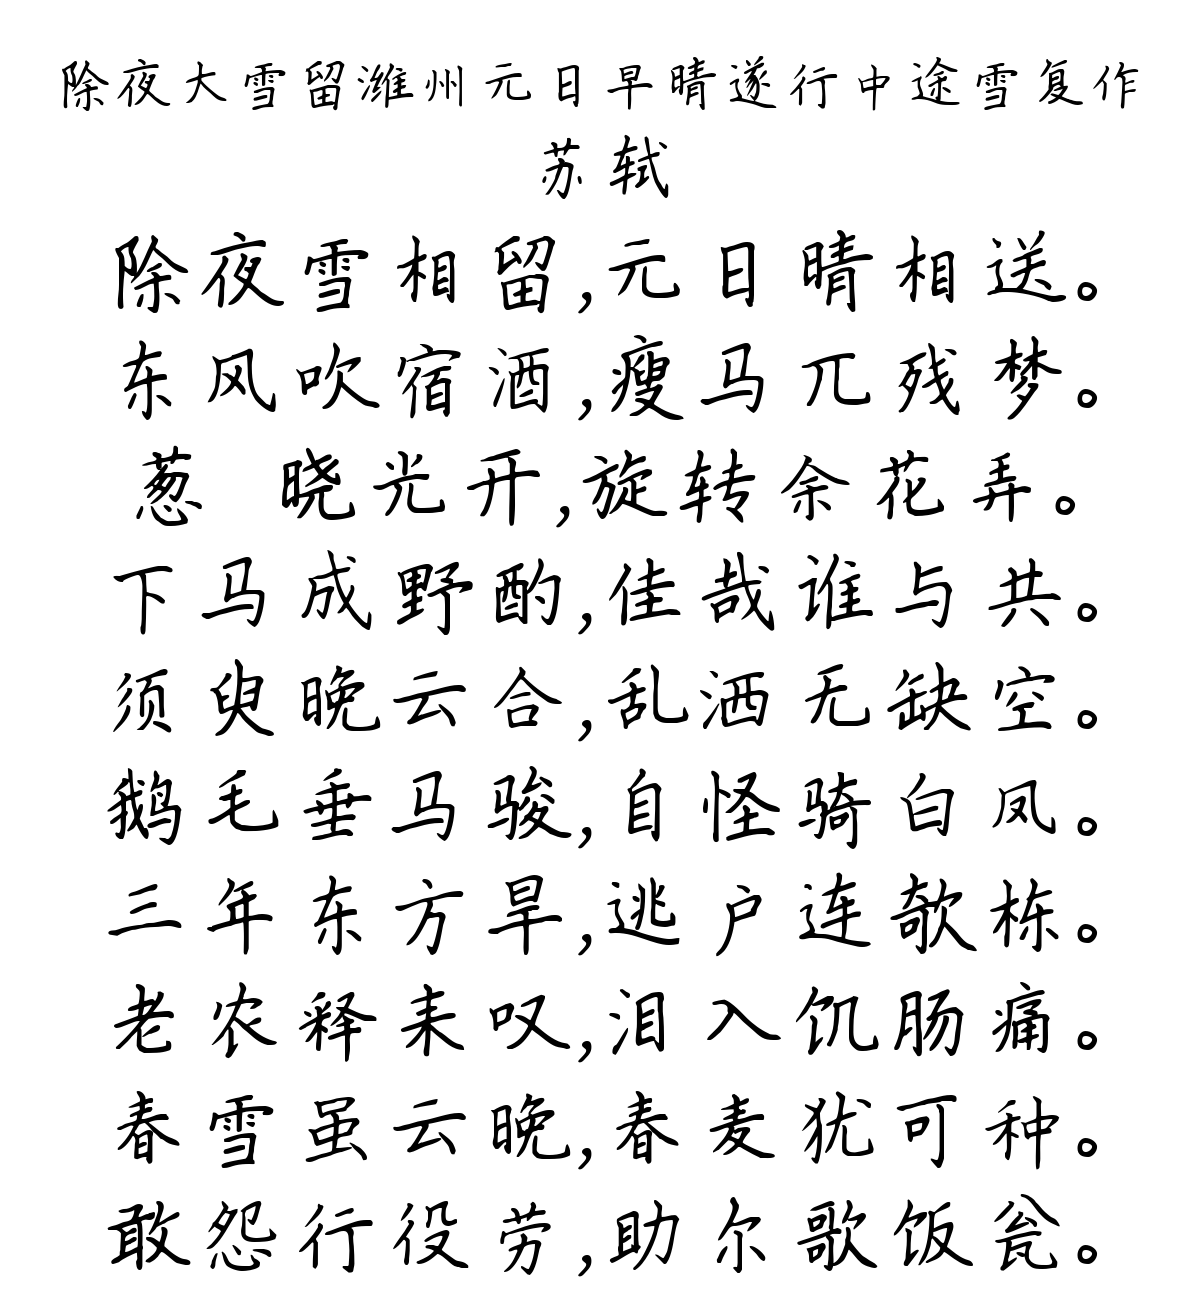 除夜大雪留潍州元日早晴遂行中途雪复作
苏轼
除夜雪相留,元日晴相送。
东风吹宿酒,瘦马兀残梦。
葱 晓光开,旋转余花弄。
下马成野酌,佳哉谁与共。
须臾晚云合,乱洒无缺空。
鹅毛垂马骏,自怪骑白凤。
三年东方旱,逃户连欹栋。
老农释耒叹,泪入饥肠痛。
春雪虽云晚,春麦犹可种。
敢怨行役劳,助尔歌饭瓮。